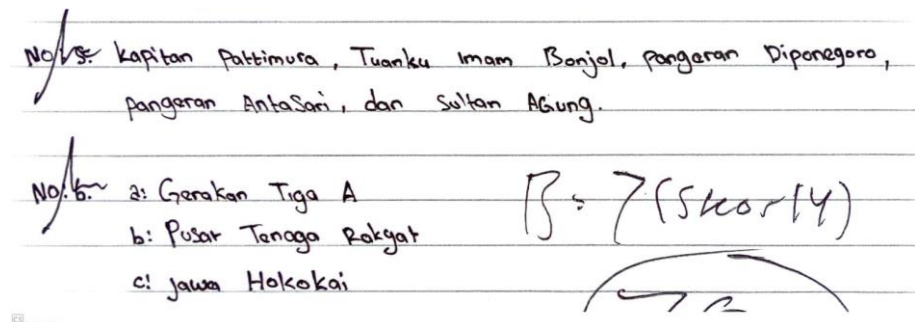 No. 5: Kapitan Pattimura, Tuanku Imam Bonjol, pangeran Diponegoro,
pangeran AntaSari, dan Sultan AGung.
No. 6. a: Gerakan Tiga A
b: Pusat Tenaga Rakyat
c: Jawa Hokokai
B = 7 (Skor 14)